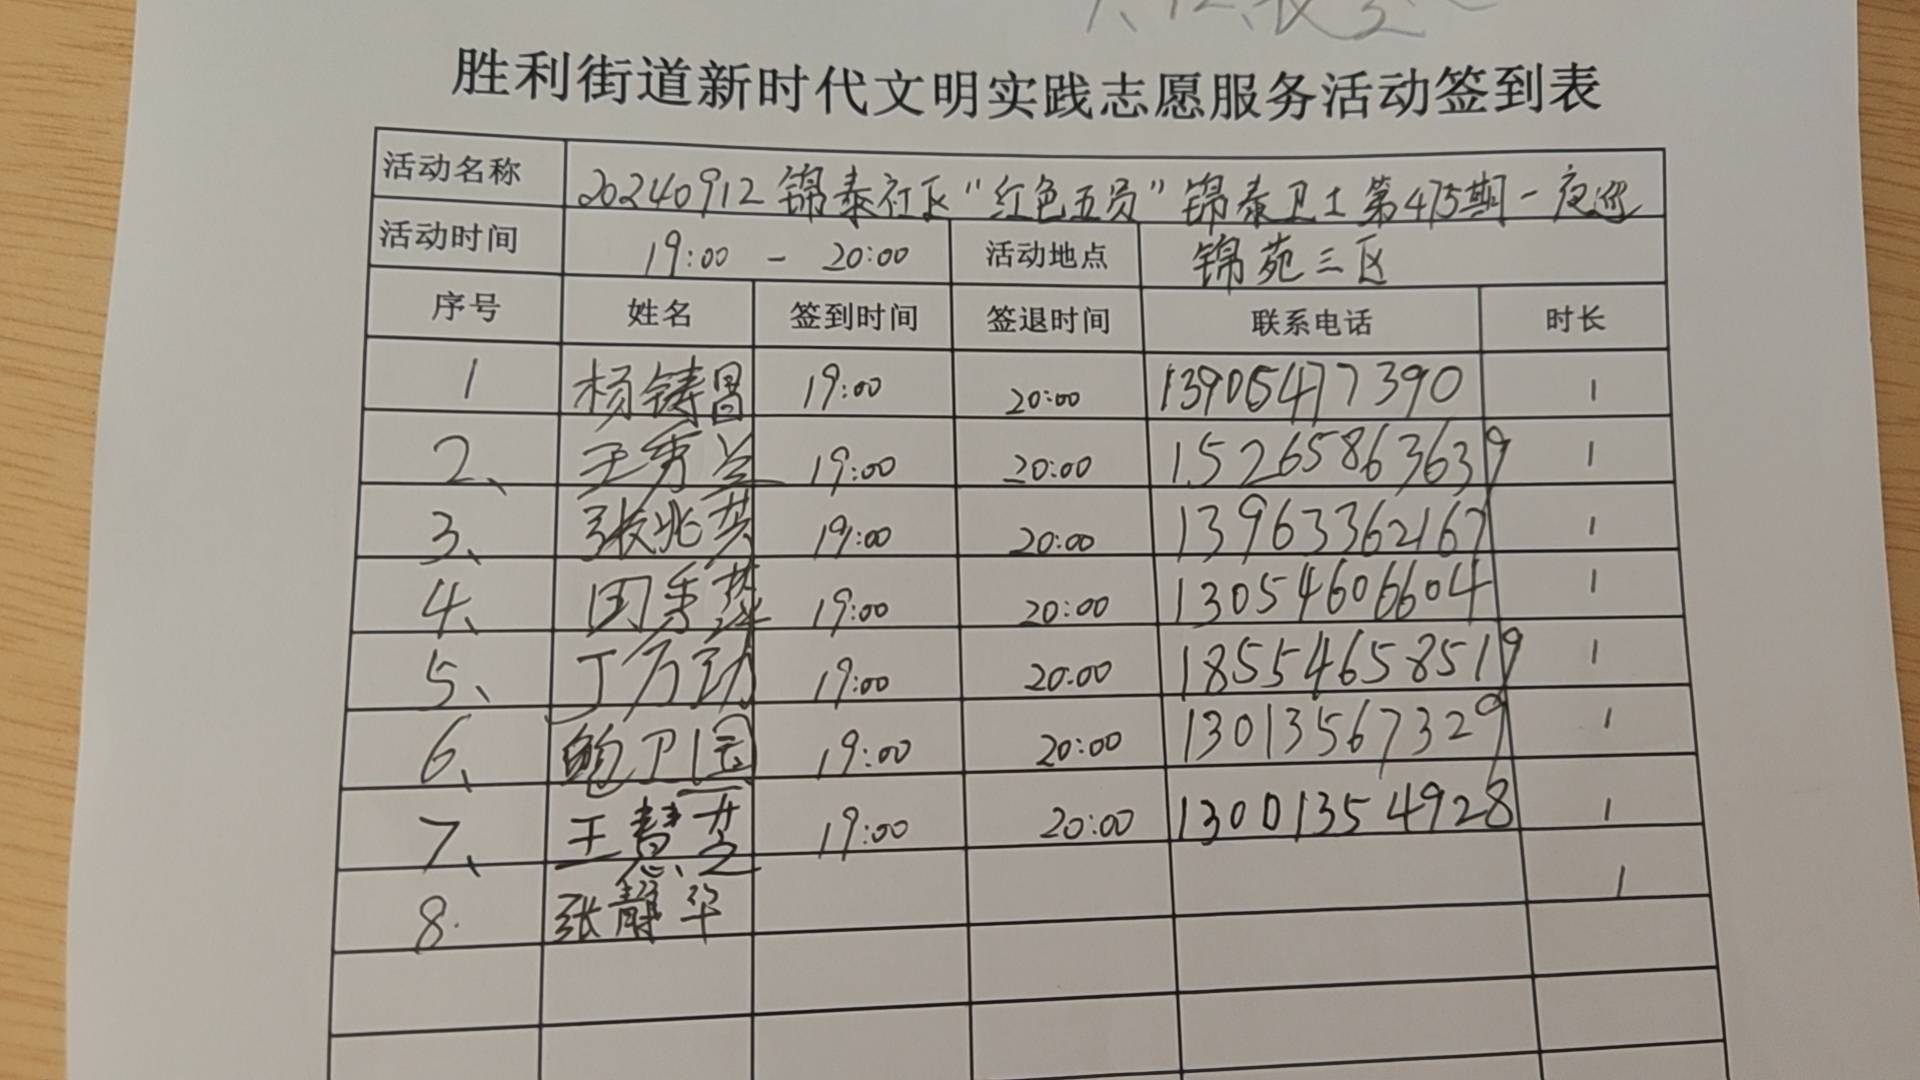 胜利街道新时代文明实践志愿服务活动签到表
活动名称 20240912 锦泰社区“红色五员”锦泰卫士第475期-夜巡
活动时间 19:00 - 20:00 活动地点 锦苑三区
序号 姓名 签到时间 签退时间 联系电话 时长
1 杨铸昌 19:00 20:00 13905477390 1
2、 王秀兰 19:00 20:00 15265863639 1
3、 张兆英 19:00 20:00 13963362167 1
4、 田秀萍 19:00 20:00 13054606604 1
5、 丁万劲 19:00 20:00 18554658519 1
6、 鲍卫国 19:00 20:00 13013567329 1
7、 王慧芝 19:00 20:00 13001354928 1
8. 张静华 1